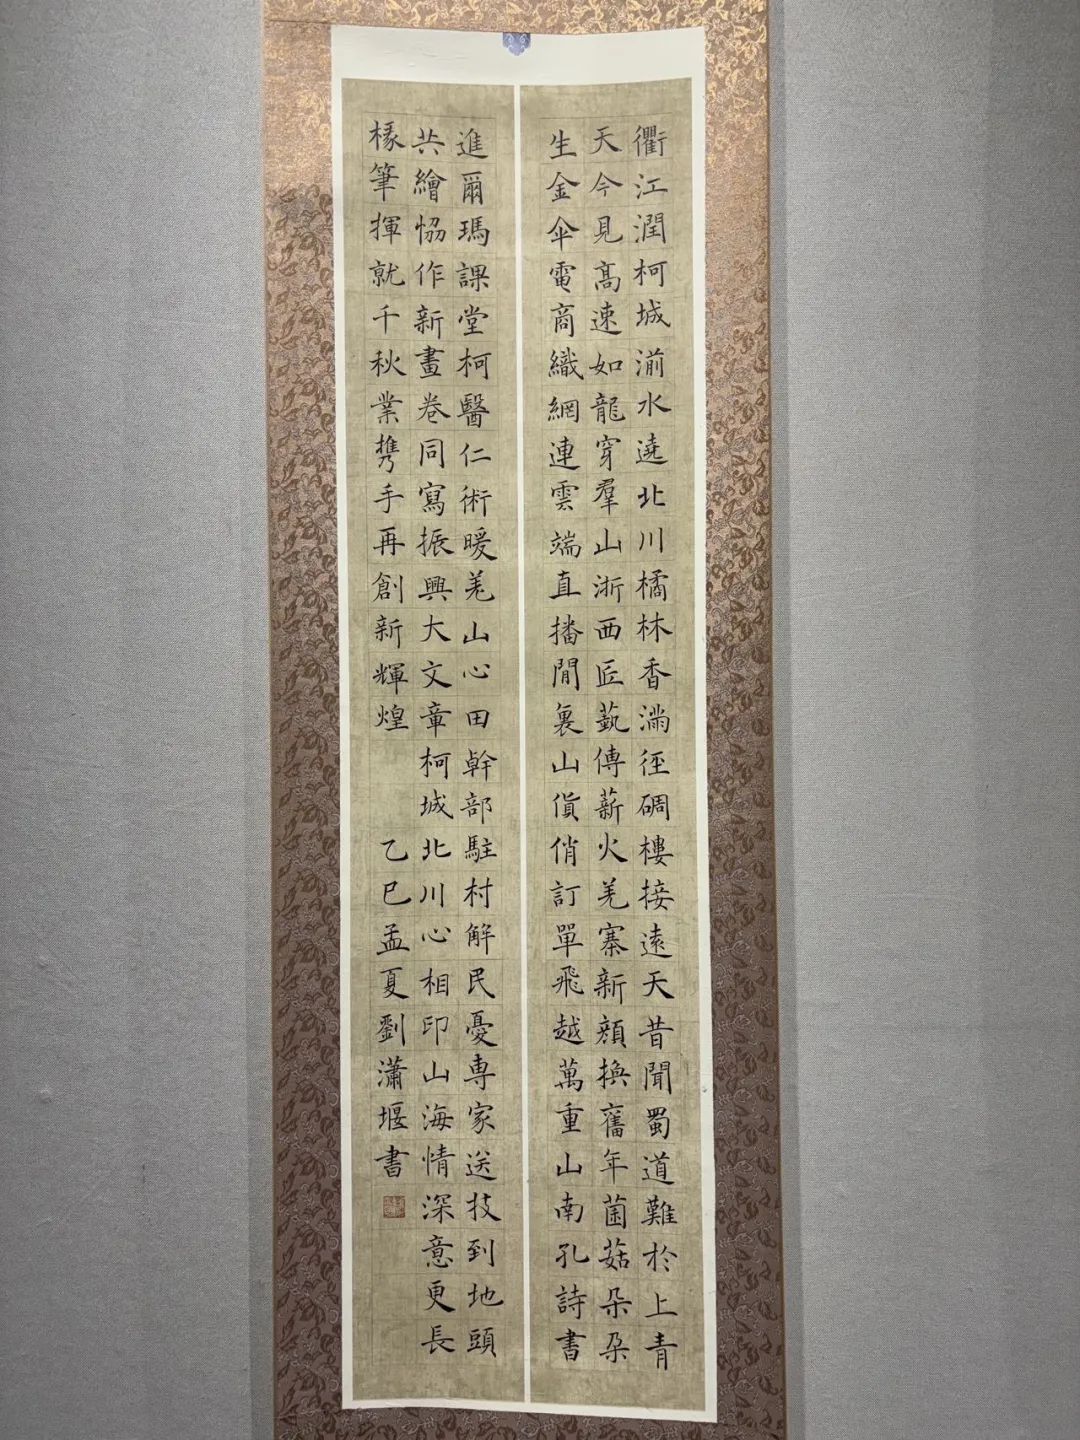 衢江潤柯城湔水遶北川橘林香滿徑碉樓接遠天昔聞蜀道難於上青
天今見髙速如龍穿羣山浙西匠藝傳薪火羌寨新顏換舊年菌菇朵朵
生金傘電商織網連雲端直播閒裏山貨俏訂單飛越萬重山南孔詩書
進爾瑪課堂柯醫仁術暖羌山心田幹部駐村解民憂專家送技到地頭
共繪恊作新畫卷同寫振興大文章柯城北川心相印山海情深意更長
椽筆揮就千秋業携手再創新輝煌 乙巳孟夏劉瀟堰書